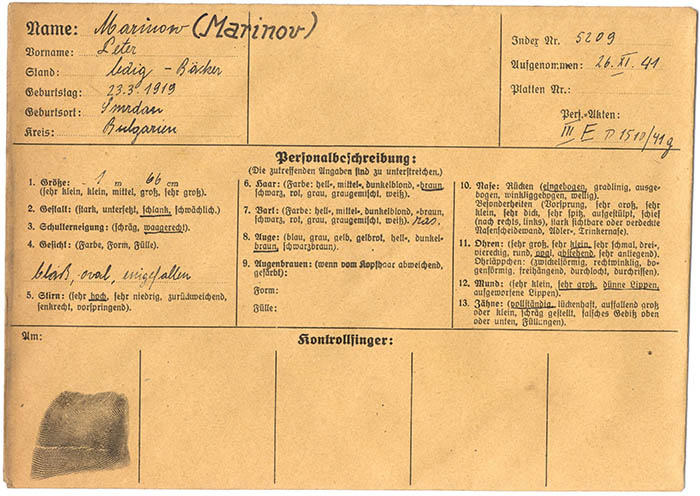 Name: Marinow (Marinov)
Vorname: Peter
Stand: ledig - Bäcker
Geburtstag: 23.3.1919
Geburtsort: Smrdan
Kreis: Bulgarien
Index Nr. 5209
Aufgenommen: 26.XI.41
Platten Nr.:
Pers.-Akten:
III E P 1510/41g
Personalbeschreibung:
(Die zutreffenden Angaben sind zu unterstreichen.)
1. Größe: 1 m 66 cm
(sehr klein, klein, mittel, groß, sehr groß).
2. Gestalt: (stark, untersetzt, schlank, schwächlich.)
3. Schulterneigung: (schräg, waagerecht).
4. Gesicht: (Farbe, Form, Fülle).
blaß, oval, eingefallen
5. Stirn: (sehr hoch, sehr niedrig, zurückweichend,
senkrecht, vorspringend).
6. Haar: (Farbe: hell-, mittel-, dunkelblond, -braun,
schwarz, rot, grau, graugemischt, weiß).
7. Bart: (Farbe: hell-, mittel-, dunkelblond, -braun,
schwarz, rot, grau, graugemischt, weiß) ras.
8. Auge: (blau, grau, gelb, gelbrot, hell-, dunkel-
braun, schwarzbraun).
9. Augenbrauen: (wenn vom Kopfhaar abweichend,
gefärbt):
Form:
Fülle:
10. Nase: Rücken (eingebogen, gradlinig, ausge-
bogen, winkliggebogen, wellig).
Besonderheiten (Vorsprung, sehr groß, sehr
klein, sehr dick, sehr spitz, aufgestülpt, schief
(nach rechts, links), stark sichtbare oder verdeckte
Nasenscheidewand, Adler-, Trinkernase).
11. Ohren: (sehr groß, sehr klein, sehr schmal, drei-
viereckig, rund, oval, abstehend, sehr anliegend).
Ohrläppchen: (zwickelförmig, rechtwinklig, bo-
genförmig, freihängend, durchlocht, durchrissen).
12. Mund: (sehr klein, sehr groß, dünne Lippen,
aufgeworfene Lippen).
13. Zähne: (vollständig, lückenhaft, auffallend groß
oder klein, schräg gestellt, falsches Gebiß oben
oder unten, Füllungen).
Am:
Kontrollfinger: